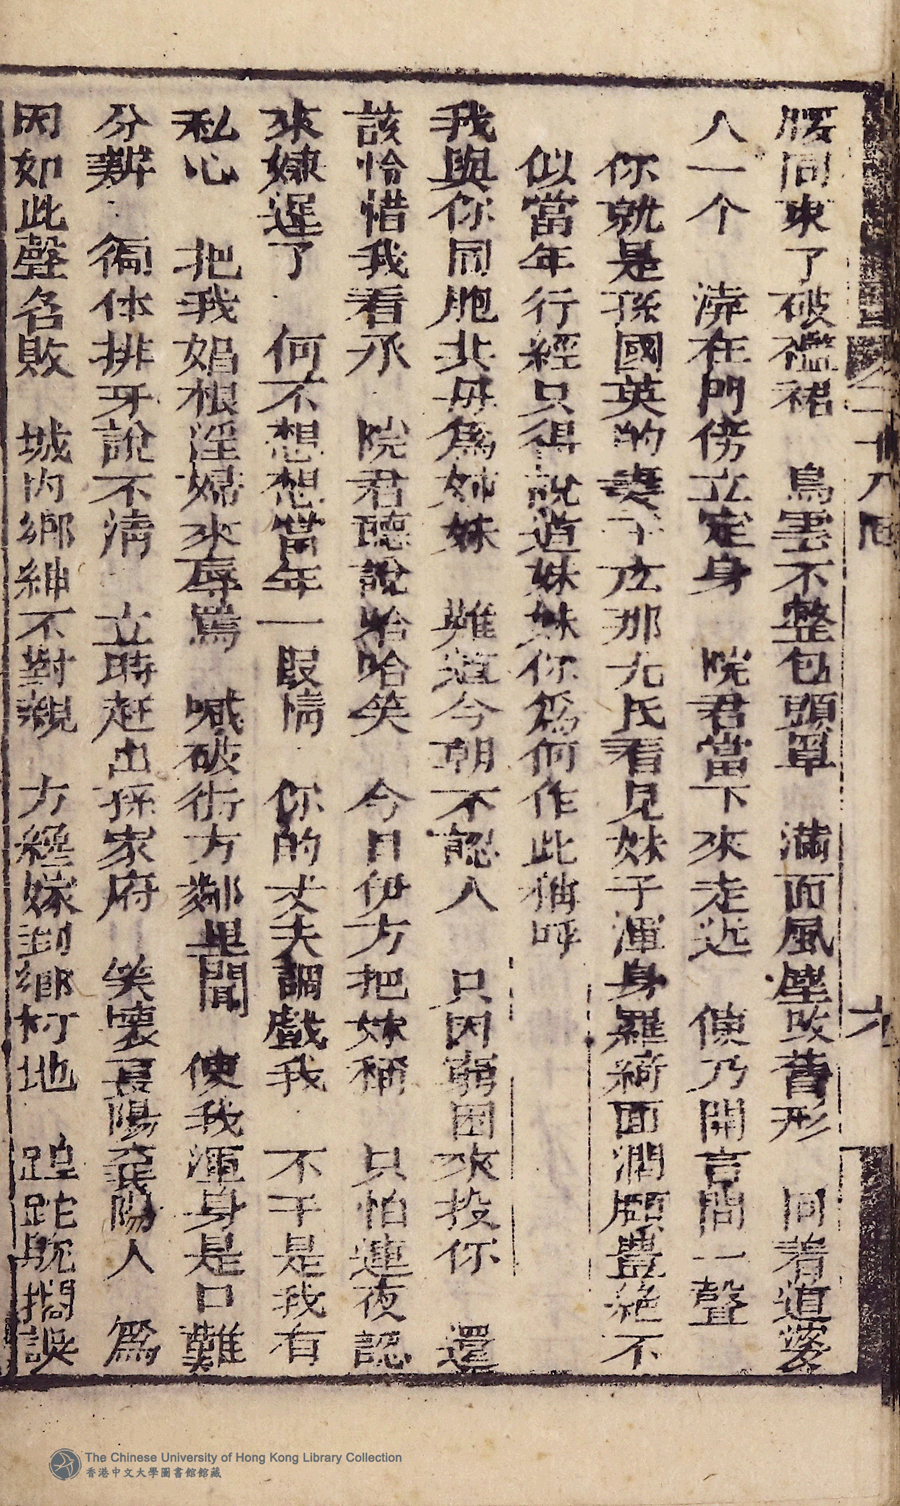 腰間束了破襤裙　烏雲不整包頭罩　滿面風塵改舊形　同着道婆
人一个　濟在門傍立定身　院君當下來走近　便乃開言問一聲
你就是孫國英的妻子広那尤氏看見妹子渾身羅綺面潤頤豊絶不
似當年行經只得說道妹妹你爲何作此稱呼
我與你同胞共母爲姊妹　難道今朝不認人　只因窮困來投你　還
該怜惜我看承　院君聽說哈哈笑　今日伊方把妹稱　只怕連夜認
來嫌遲了　何不想想當年一段情　你的丈夫調戲我　不干是我有
私心　把我娼根淫婦來辱駡　喊破街方鄰里聞　使我渾身是口難
分辨　徧体排牙說不清　立時赶出孫家府　笑壞襄陽棗陽人　爲
因如此聲名敗　城內鄉紳不對親　方經嫁到鄉村地　蹌跎躭擱誤
二十八回
六
The Chinese University of Hong Kong Library Collection
香港中文大學圖書館館藏